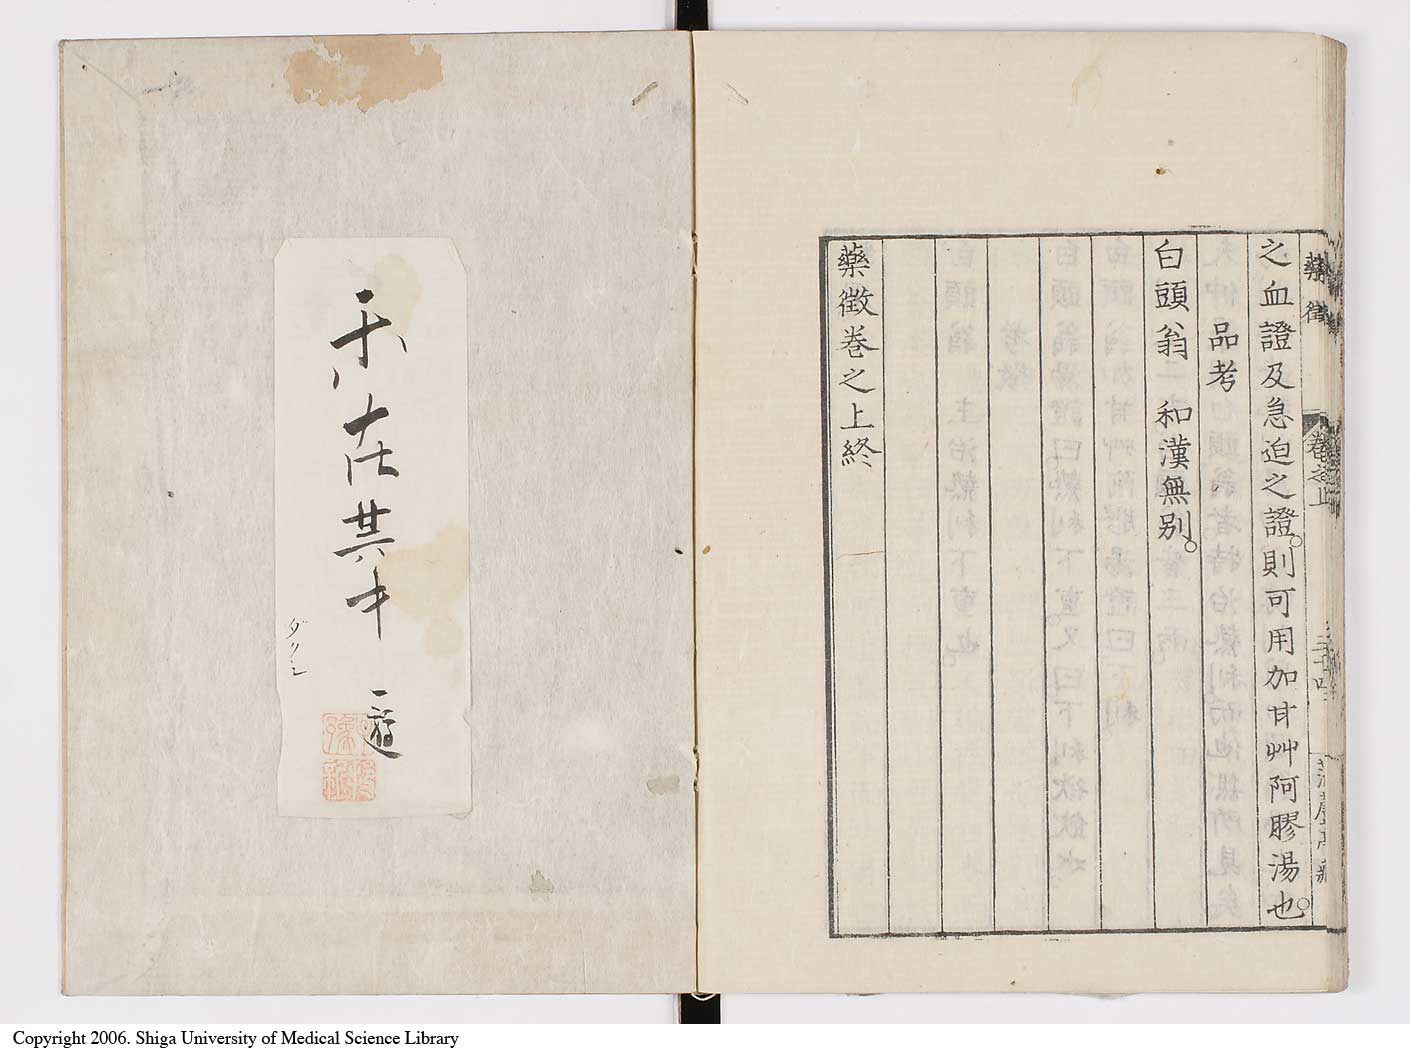 藥徵
卷之上
三十四
之血證及急迫之證。則可用加甘艸阿膠湯也。
品考
白頭翁 和漢無別。
藥徵卷之上終
樂在其中
Copyright 2006. Shiga University of Medical Science Library